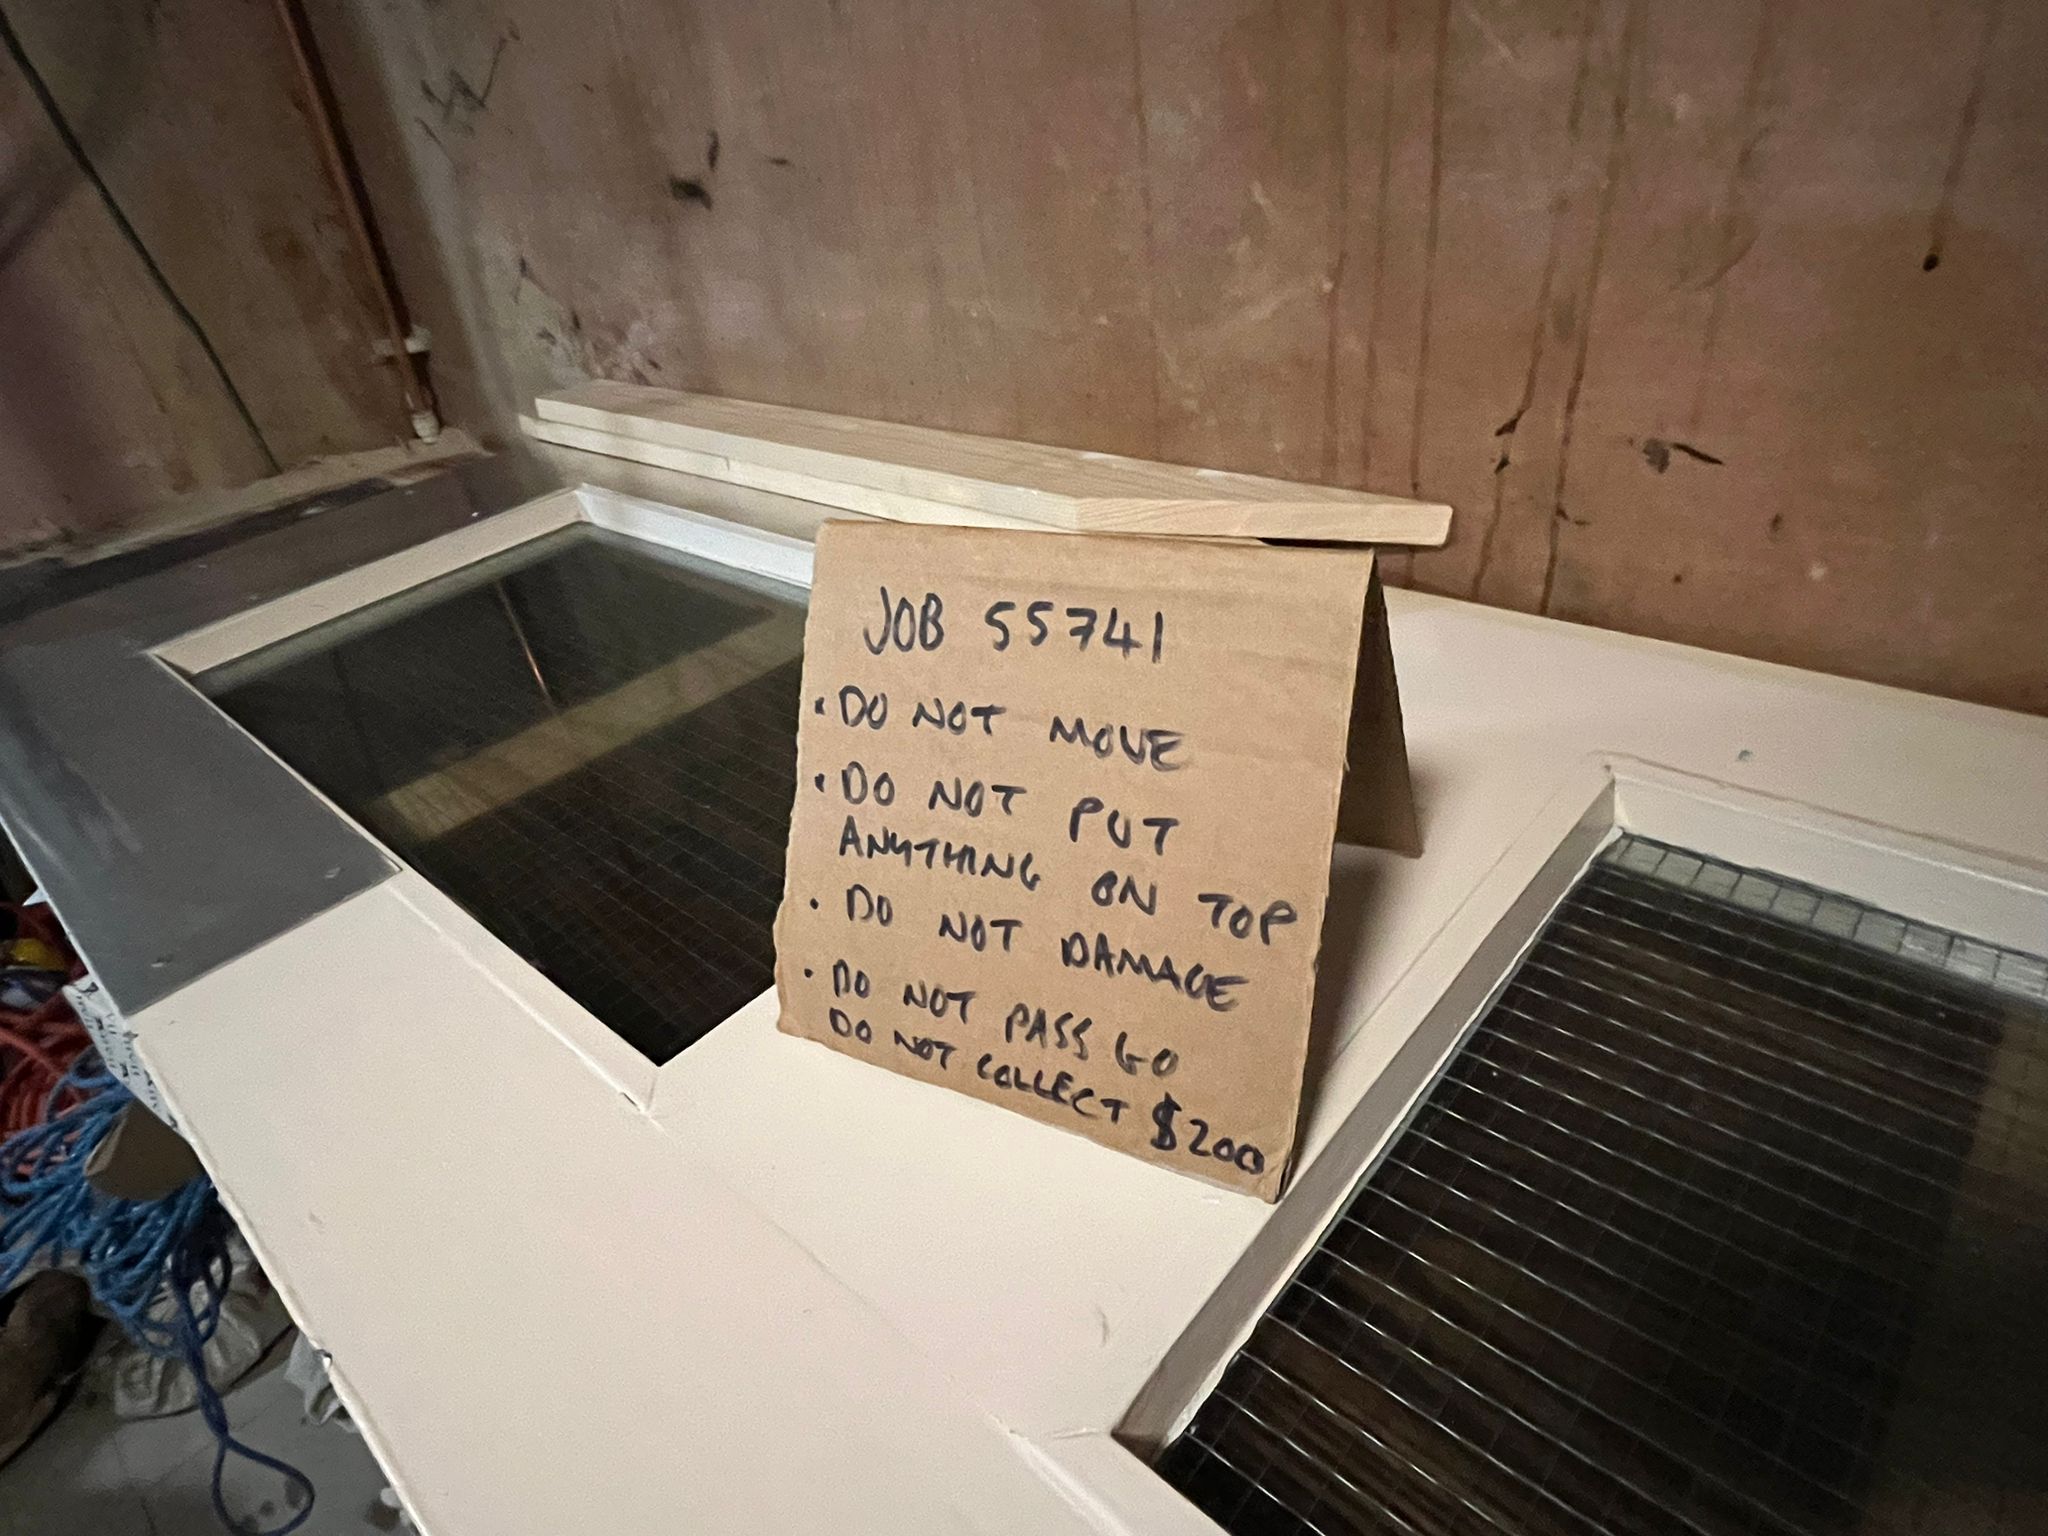 JOB 55741
• DO NOT MOVE
• DO NOT PUT
ANYTHING ON TOP
• DO NOT DAMAGE
• DO NOT PASS GO
DO NOT COLLECT $200